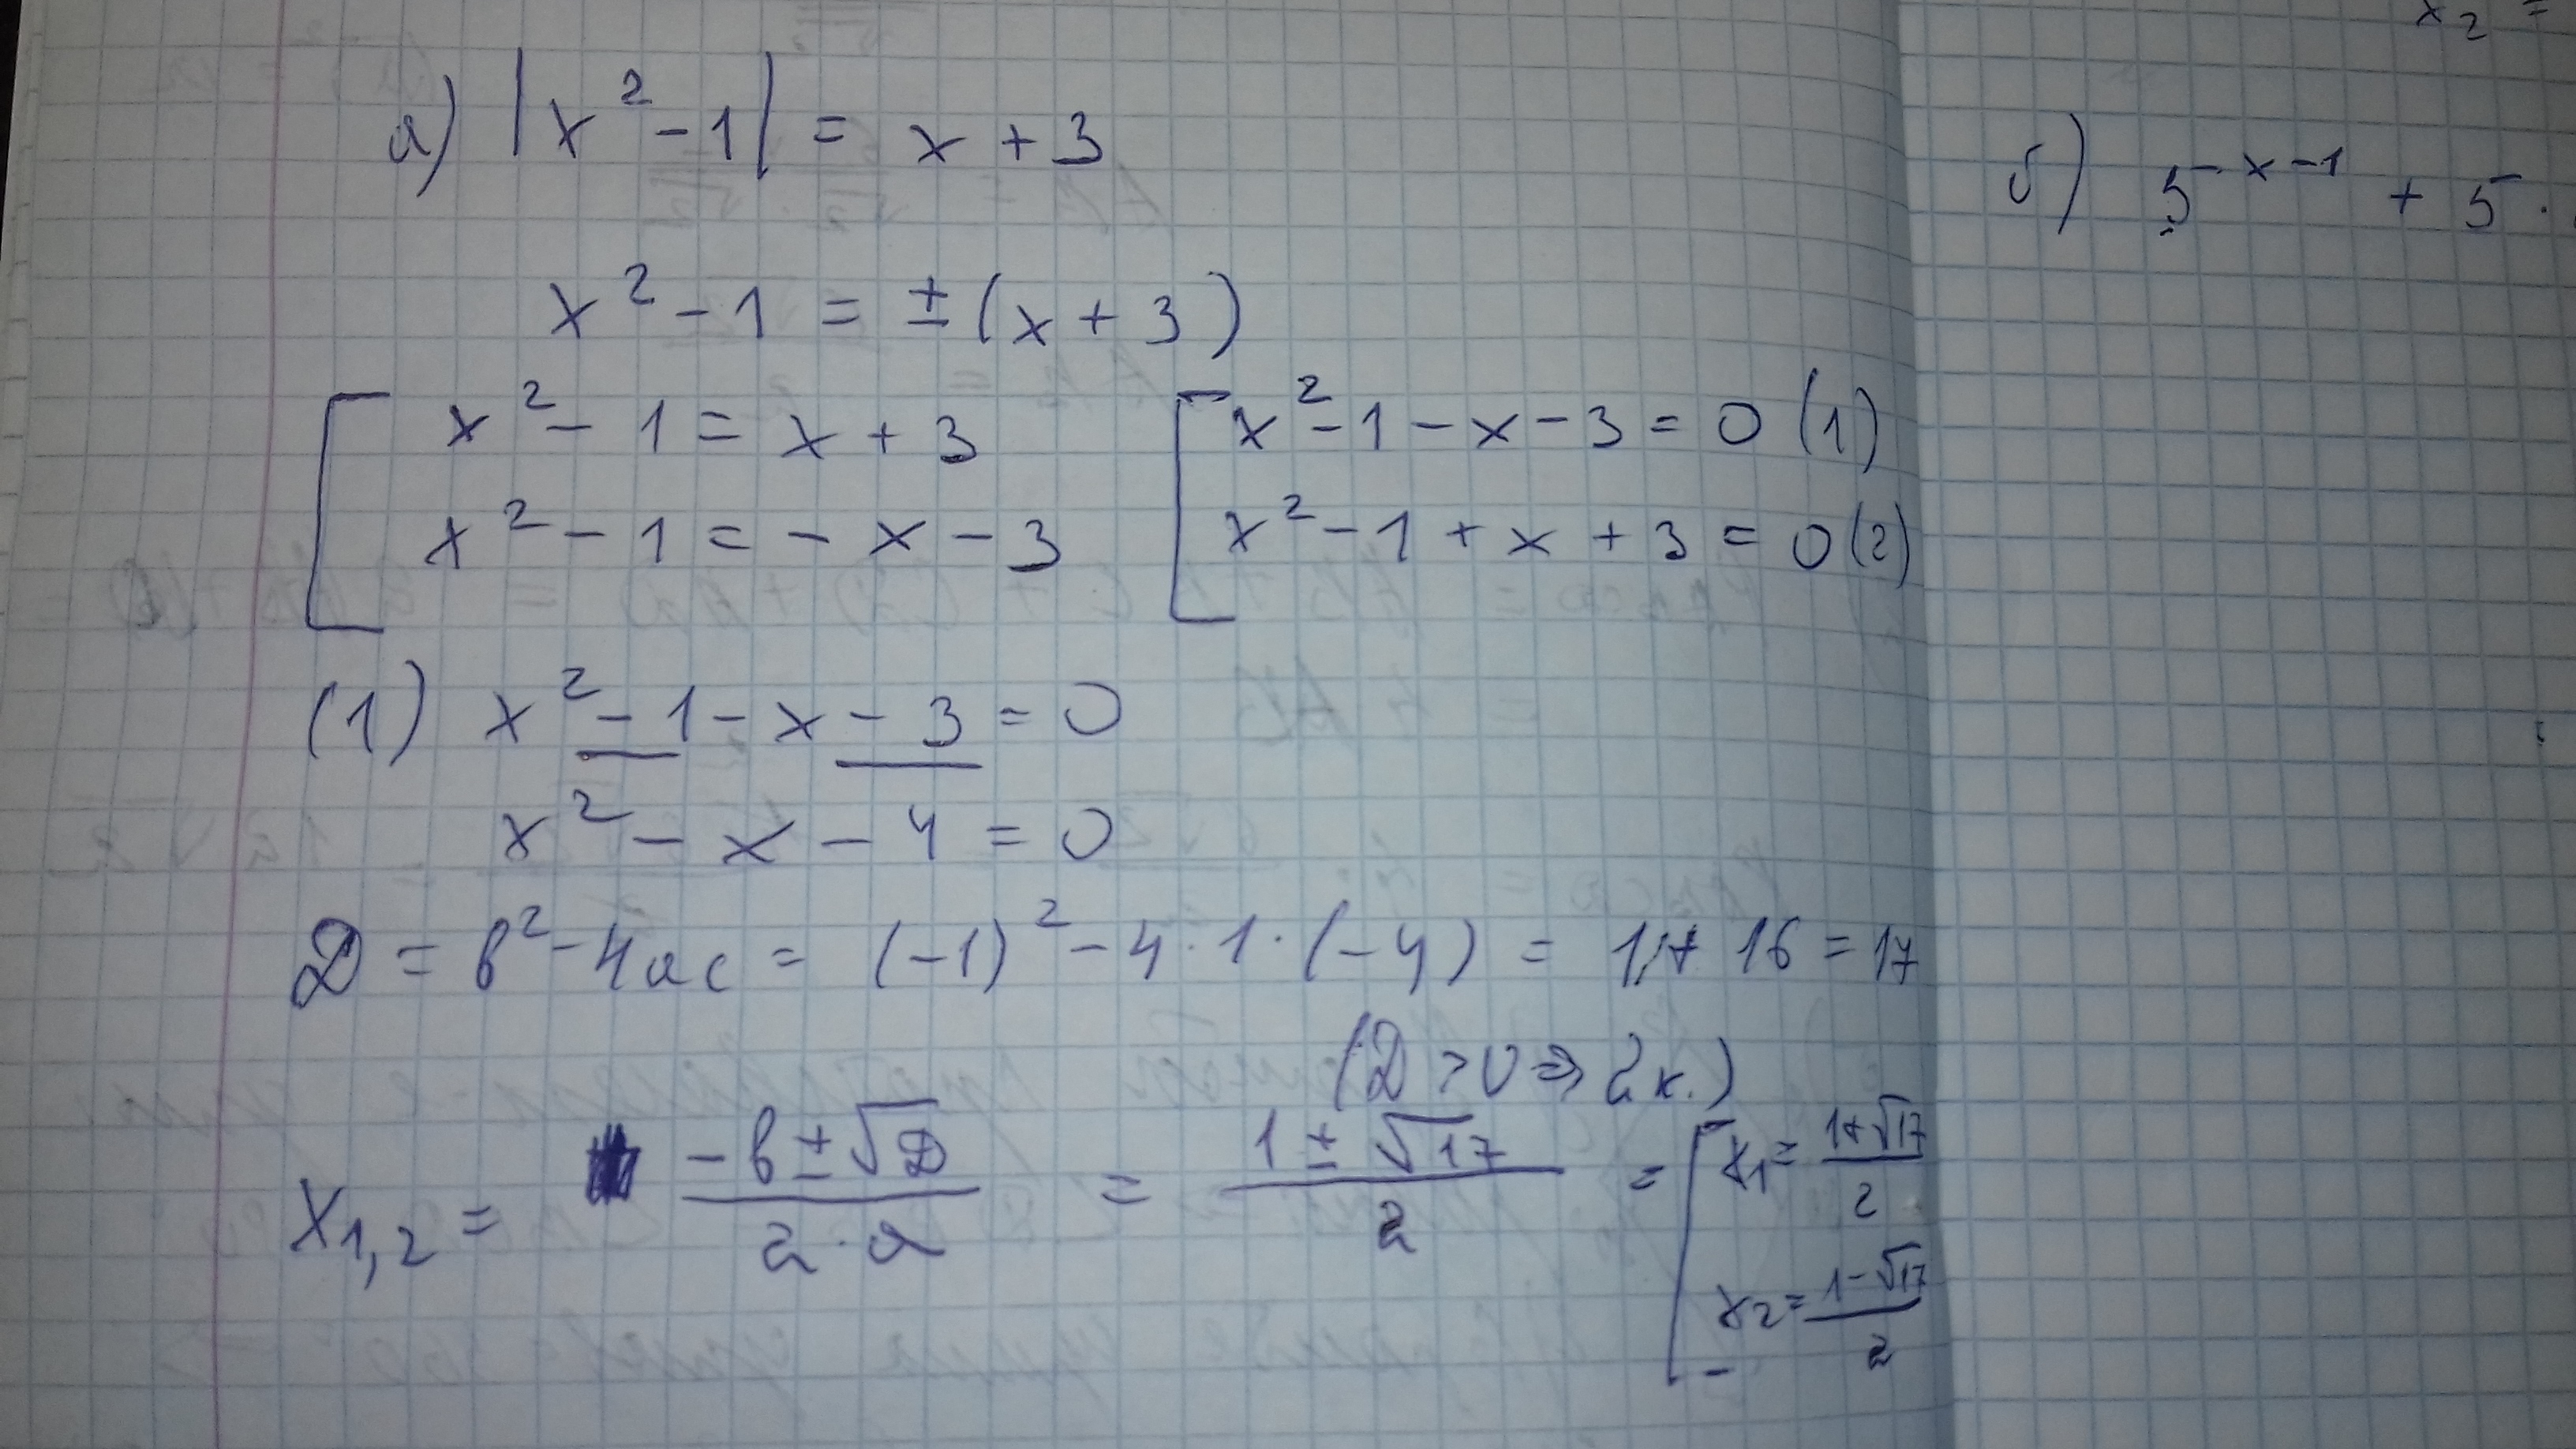 а) |x² - 1| = x + 3
x² - 1 = ± (x + 3)
x² - 1 = x + 3
x² - 1 = - x - 3
x² - 1 - x - 3 = 0 (1)
x² - 1 + x + 3 = 0 (2)
(1) x² - 1 - x - 3 = 0
x² - x - 4 = 0
D = b² - 4ac = (-1)² - 4 · 1 · (-4) = 1 + 16 = 17
(D > 0 ⇒ 2 к.)
x₁,₂ = (-b ± √D)/(2 · a) = (1 ± √17)/2 = [ x₁ = (1 + √17)/2
x₂ = (1 - √17)/2
x₂ =
б) 5^(x-1) + 5 ·